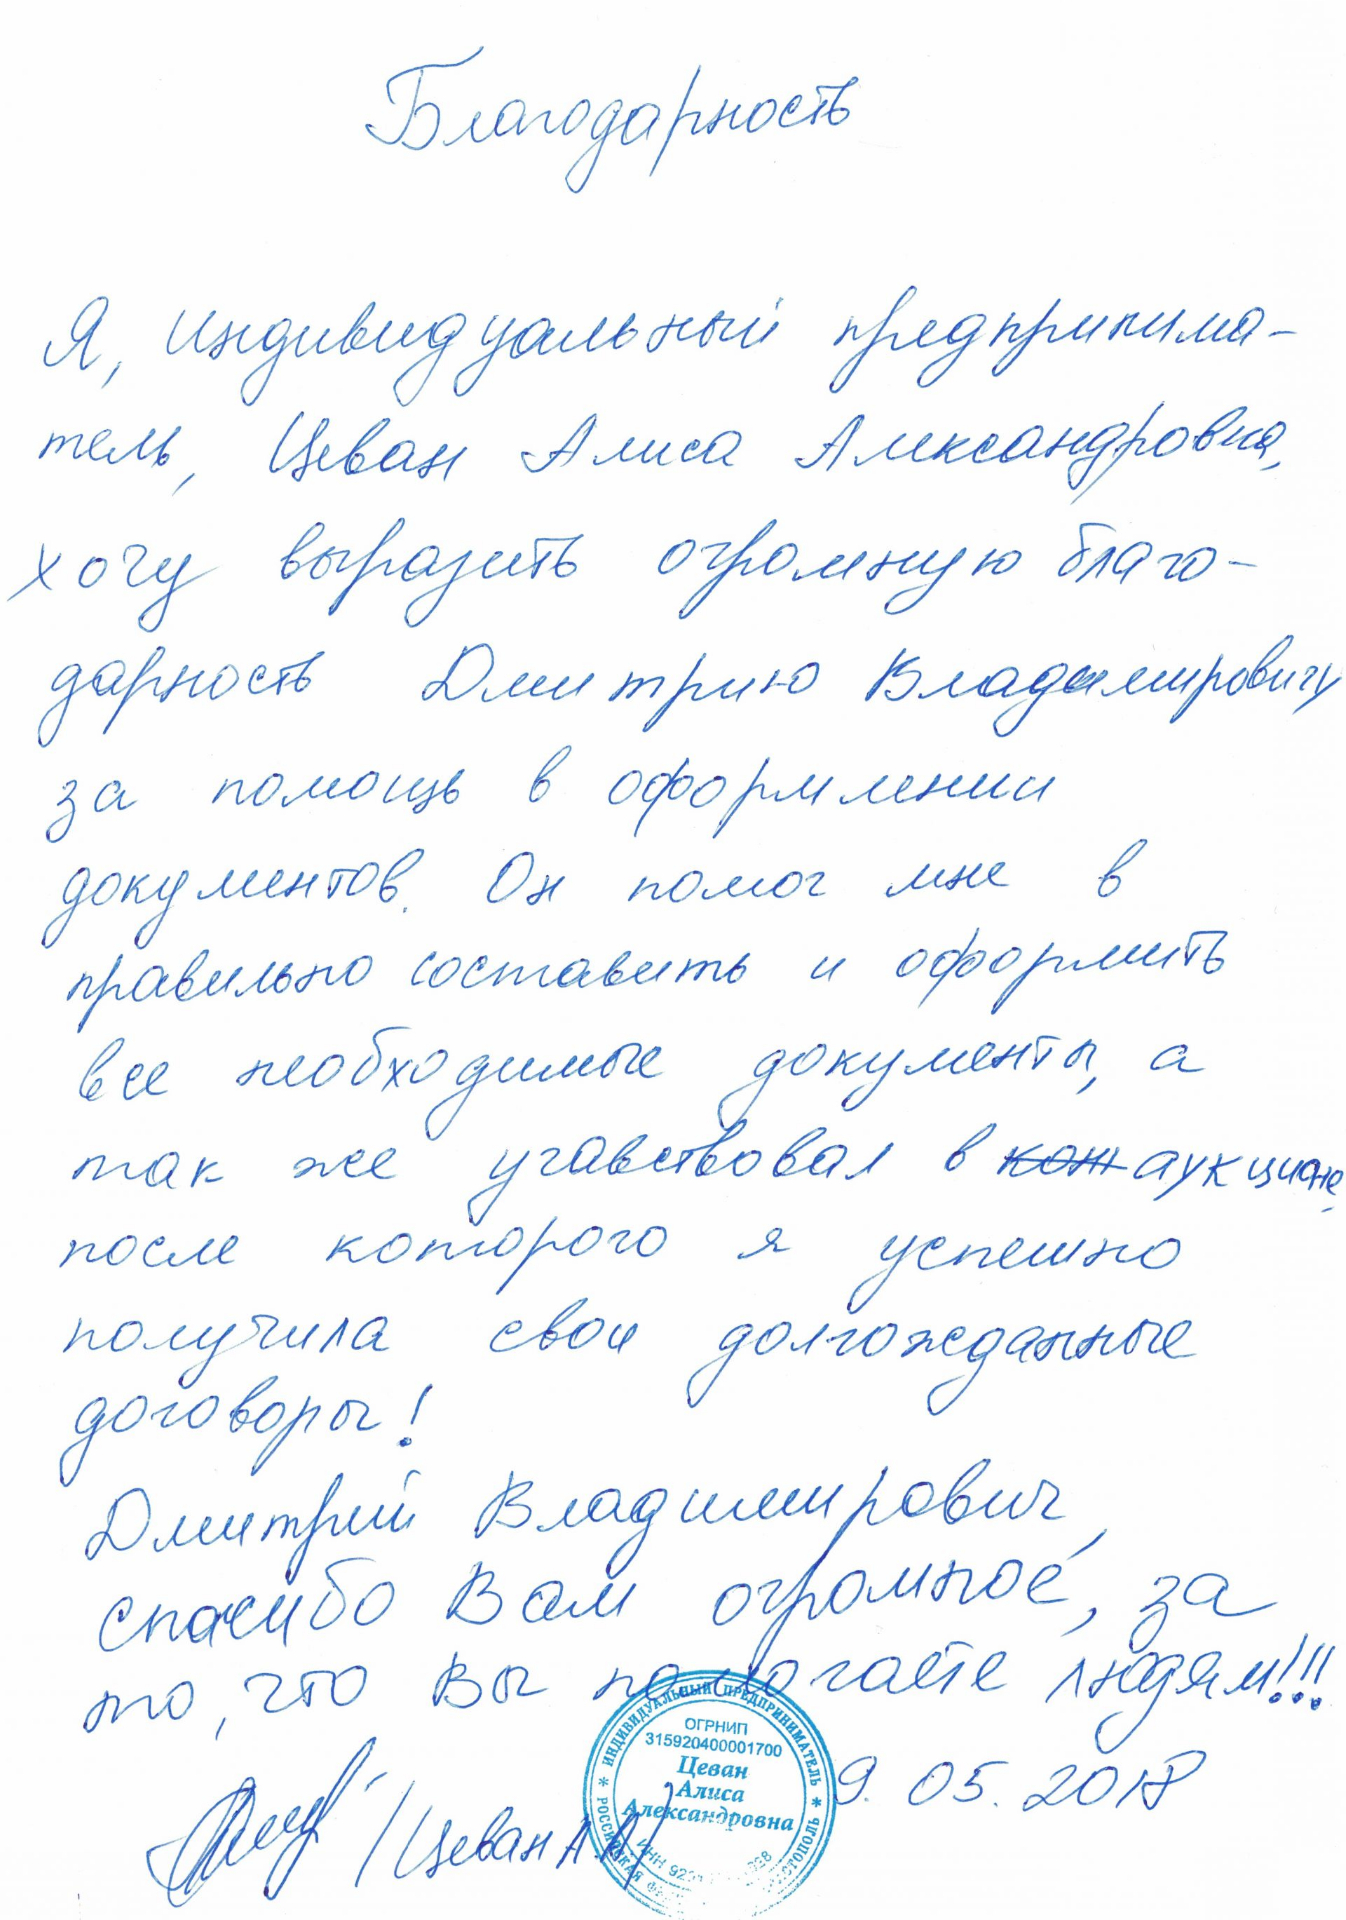 Благодарность
Я, индивидуальный предпринима-
тель, Цеван Алиса Александровна,
хочу выразить огромную благо-
дарность Дмитрию Владимировичу
за помощь в оформлении
документов. Он помог мне в
правильно составить и оформить
все необходимые документы, а
так же учавствовал в аукционе,
после которого я успешно
получила свои долгожданные
договоры!
Дмитрий Владимирович,
спасибо Вам огромное, за
то, что Вы помогаете людям!!!
9.05.2018
/Цеван А.А/
* ИНДИВИДУАЛЬНЫЙ ПРЕДПРИНИМАТЕЛЬ *
ОГРНИП
315920400001700
Цеван
Алиса
Александровна
ИНН
РОССИЙСКАЯ